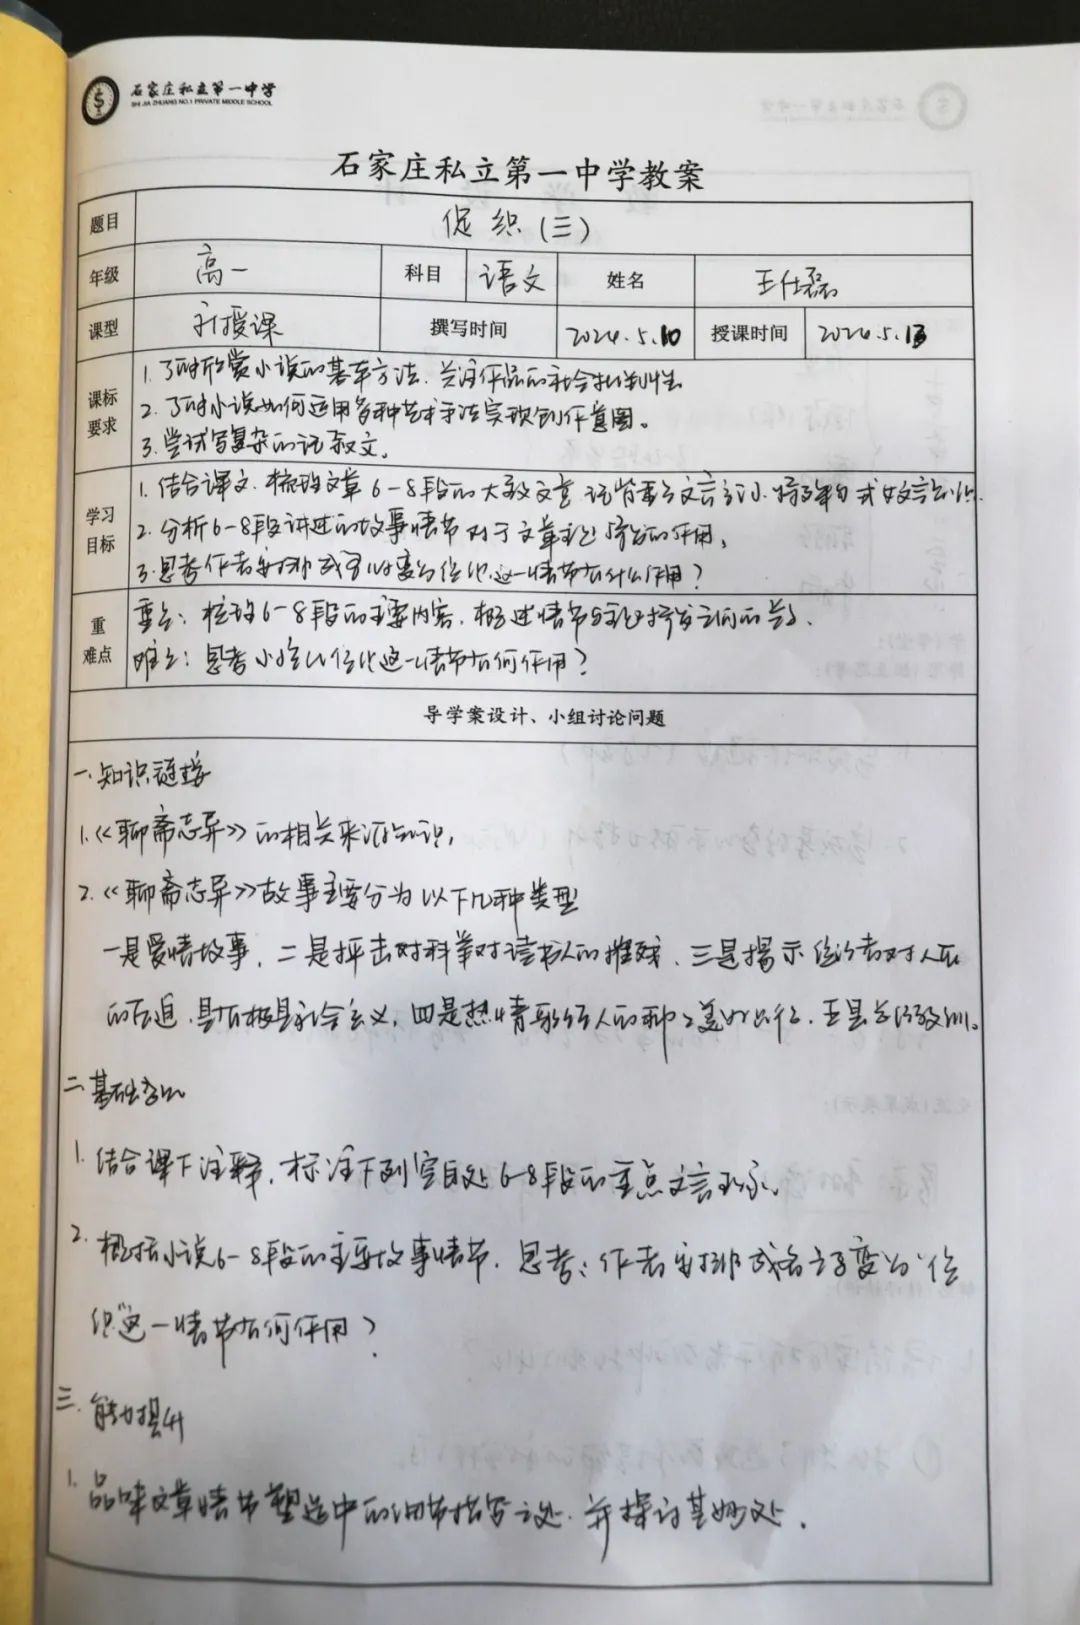 石家庄私立第一中学
SHI JIA ZHUANG NO.1 PRIVATE MIDDLE SCHOOL
石家庄私立第一中学教案
题目 促织(三)
年级 高一 科目 语文 姓名 王仕磊
课型 新授课 撰写时间 2024.5.10 授课时间 2024.5.13
课标要求
1. 了解欣赏小说的基本方法、关注作品的社会批判性
2. 了解小说如何运用各种艺术手法实现创作意图。
3. 尝试写复杂的记叙文。
学习目标
1. 结合课文、梳理文章6-8段的大致文意
2. 分析6-8段讲述的故事情节对于文章主题 的作用。
3. 思考作者安排成名 变为促织这一情节有什么作用?
重难点
重点:梳理6-8段的主要内容、概述情节与主题 之间的关系.
难点:思考 促织这一情节有何作用?
导学案设计、小组讨论问题
一.知识链接
1.《聊斋志异》的相关来源知识.
2.《聊斋志异》故事主要分为以下几种类型
一是爱情故事、二是抨击对科举对读书人的摧残、三是揭示统治者对人民
的压迫、具有 社会意义、四是热情歌颂人的种种美好品行、五是总结教训。
二.基础
1. 结合课下注释,标注下列空白处6-8段的重点文言
2. 概括小说6-8段的主要故事情节.思考:作者安排成名之子变为“促
织”这一情节有何作用?
三.能力提升
1. 品味文章情节塑造中的细节描写之处.并探讨其妙处.